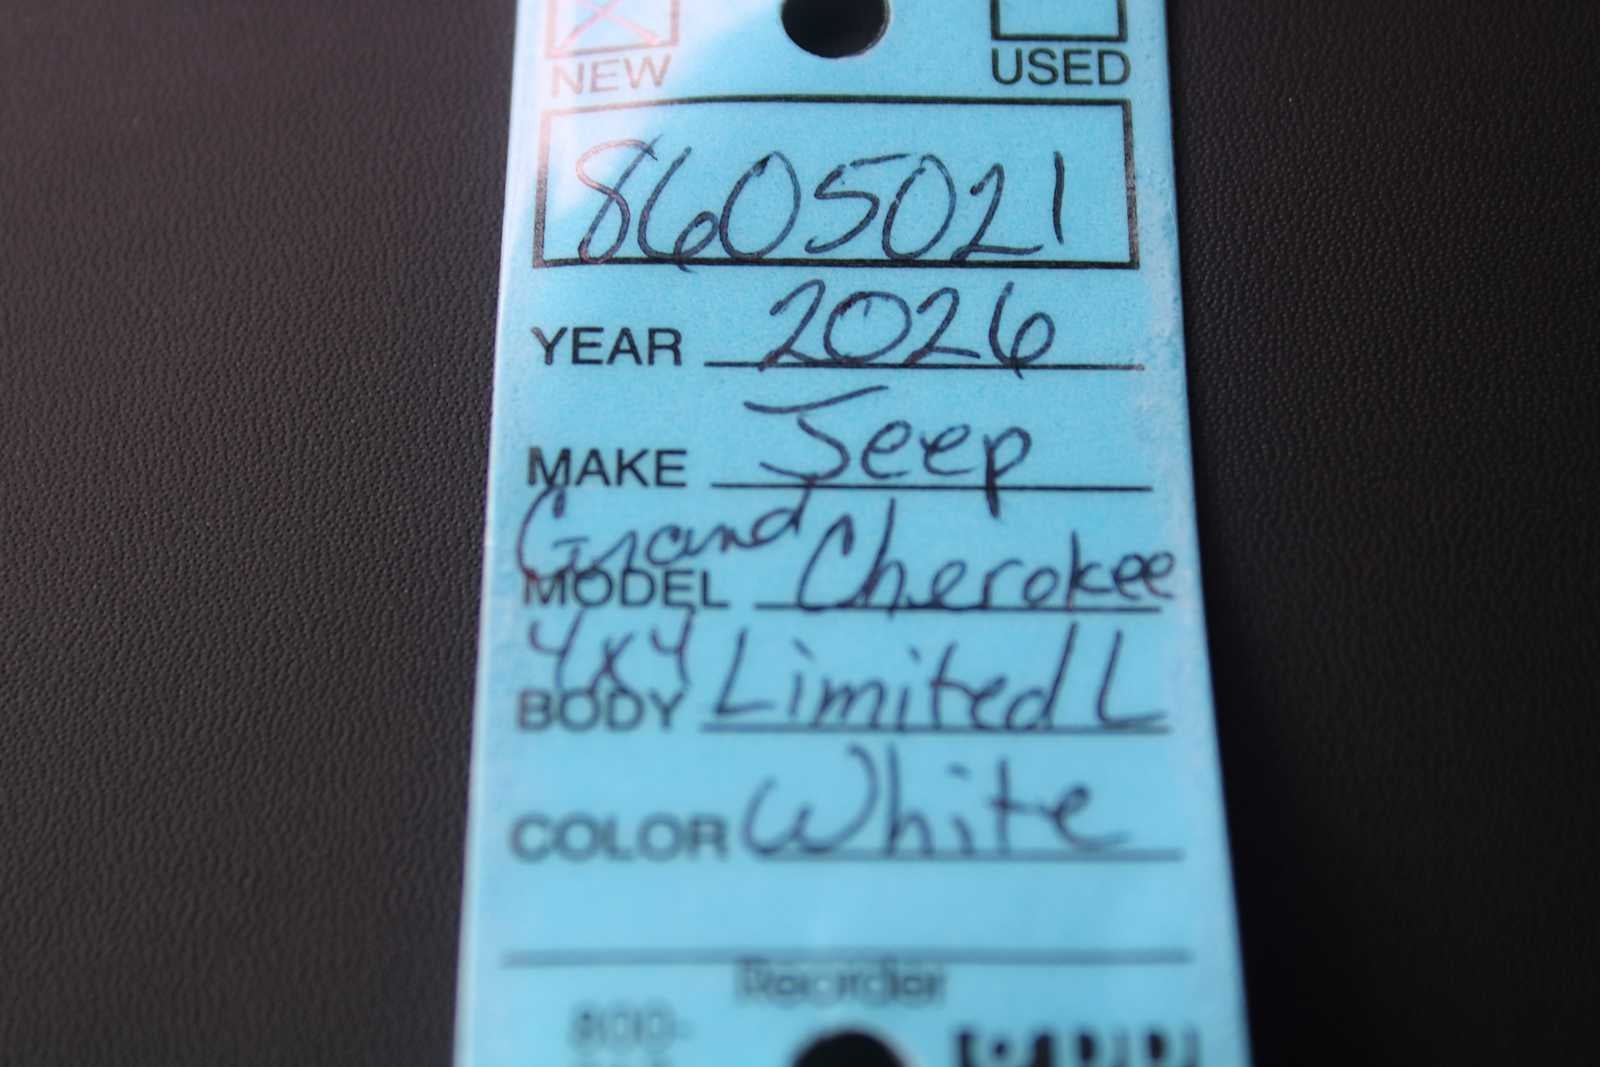 NEW USED
8605021
YEAR 2026
MAKE Jeep
MODEL Grand Cherokee
4x4
BODY Limited L
COLOR White
Reorder
800-